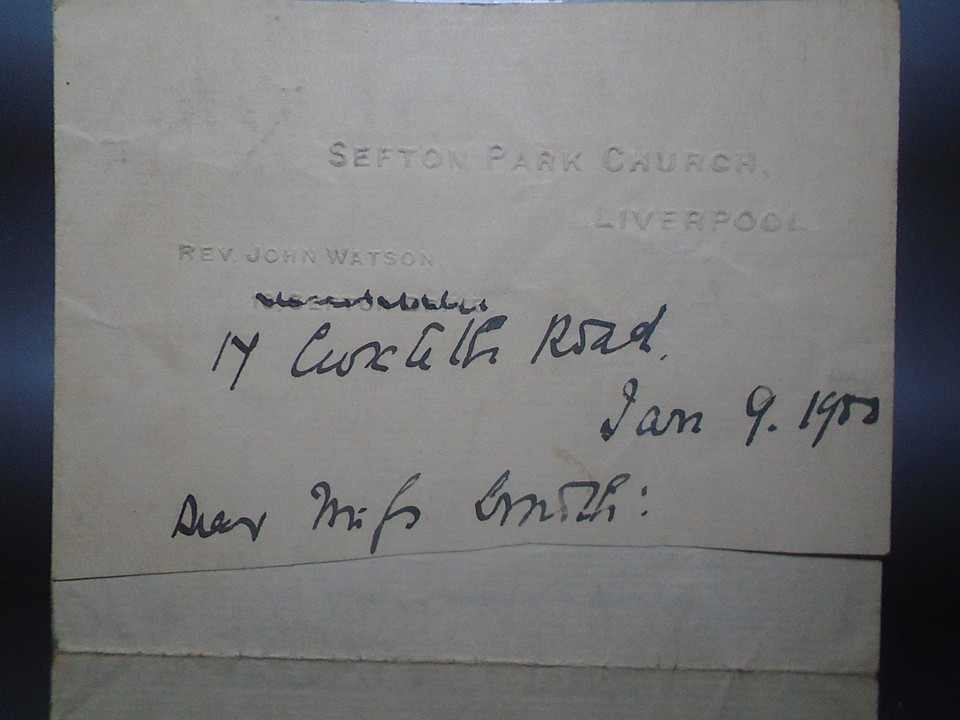 SEFTON PARK CHURCH,
LIVERPOOL
REV. JOHN WATSON
17 Croxteth Road.
Jan 9. 1900
Dear Miss Smith: